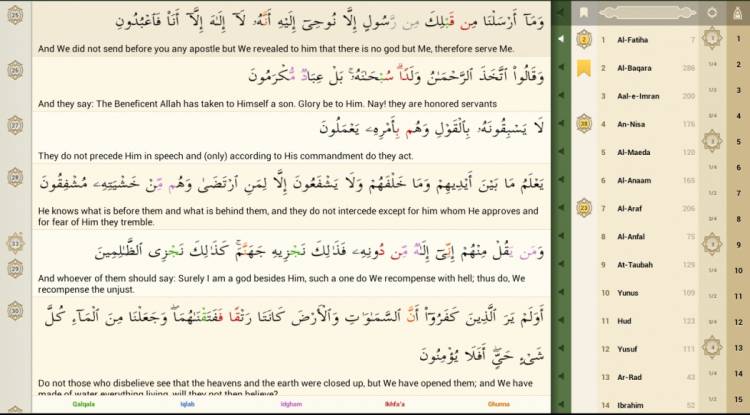 25
وَمَآ أَرْسَلْنَا مِن قَبْلِكَ مِن رَّسُولٍ إِلَّا نُوحِىٓ إِلَيْهِ أَنَّهُۥ لَآ إِلَٰهَ إِلَّآ أَنَا۠ فَٱعْبُدُونِ
And We did not send before you any apostle but We revealed to him that there is no god but Me, therefore serve Me.
26
وَقَالُوا۟ ٱتَّخَذَ ٱلرَّحْمَٰنُ وَلَدًا ۗ سُبْحَٰنَهُۥ ۚ بَلْ عِبَادٌ مُّكْرَمُونَ
And they say: The Beneficent Allah has taken to Himself a son. Glory be to Him. Nay! they are honored servants
27
لَا يَسْبِقُونَهُۥ بِٱلْقَوْلِ وَهُم بِأَمْرِهِۦ يَعْمَلُونَ
They do not precede Him in speech and (only) according to His commandment do they act.
28
يَعْلَمُ مَا بَيْنَ أَيْدِيهِمْ وَمَا خَلْفَهُمْ وَلَا يَشْفَعُونَ إِلَّا لِمَنِ ٱرْتَضَىٰ وَهُم مِّنْ خَشْيَتِهِۦ مُشْفِقُونَ
He knows what is before them and what is behind them, and they do not intercede except for him whom He approves and
for fear of Him they tremble.
33
29
وَمَن يَقُلْ مِنْهُمْ إِنِّىٓ إِلَٰهٌ مِّن دُونِهِۦ فَذَٰلِكَ نَجْزِيهِ جَهَنَّمَ ۚ كَذَٰلِكَ نَجْزِى ٱلظَّٰلِمِينَ
And whoever of them should say: Surely I am a god besides Him, such a one do We recompense with hell; thus do, We
recompense the unjust.
30
أَوَلَمْ يَرَ ٱلَّذِينَ كَفَرُوٓا۟ أَنَّ ٱلسَّمَٰوَٰتِ وَٱلْأَرْضَ كَانَتَا رَتْقًا فَفَتَقْنَٰهُمَا ۖ وَجَعَلْنَا مِنَ ٱلْمَآءِ كُلَّ
شَىْءٍ حَىٍّ ۖ أَفَلَا يُؤْمِنُونَ
Do not those who disbelieve see that the heavens and the earth were closed up, but We have opened them; and We have
made of water everything living, will they not then believe?
Qalqala Iqlab Idgham Ikhfa'a Ghunna
2 1 Al-Fatiha 7
2 Al-Baqara 286
3 Aal-e-Imran 200
38 4 An-Nisa 176
5 Al-Maeda 120
6 Al-Anaam 165
23 7 Al-Araf 206
8 Al-Anfal 75
9 At-Taubah 129
10 Yunus 109
11 Hud 123
12 Yusuf 111
13 Ar-Rad 43
14 Ibrahim 52
1
1/4
1/2
3/4
2
1/4
1/2
3/4
3
1/4
1/2
3/4
4
1/4
1/2
1
2
3
4
5
6
7
8
9
10
11
12
13
14
15